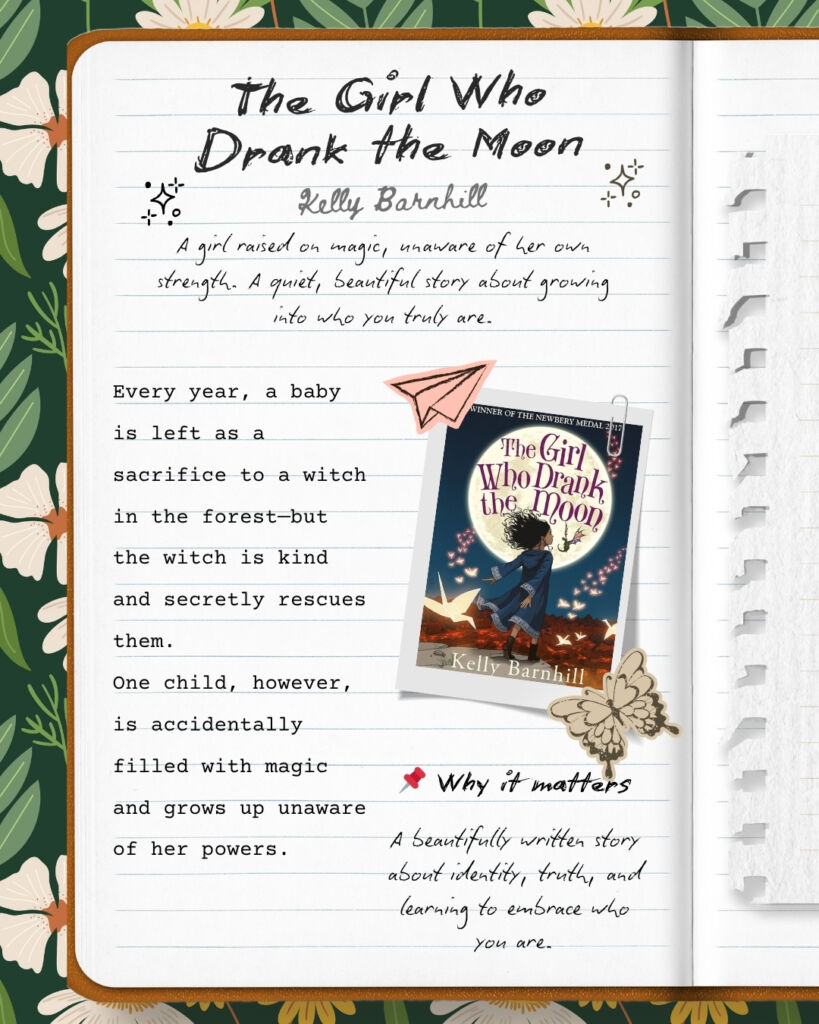 The Girl Who
Drank the Moon
Kelly Barnhill
A girl raised on magic, unaware of her own
strength. A quiet, beautiful story about growing
into who you truly are.
Every year, a baby
is left as a
sacrifice to a witch
in the forest—but
the witch is kind
and secretly rescues
them.
One child, however,
is accidentally
filled with magic
and grows up unaware
of her powers.
WINNER OF THE NEWBERY MEDAL 2017
The Girl
Who Drank
the Moon
Kelly Barnhill
Why it matters
A beautifully written story
about identity, truth, and
learning to embrace who
you are.